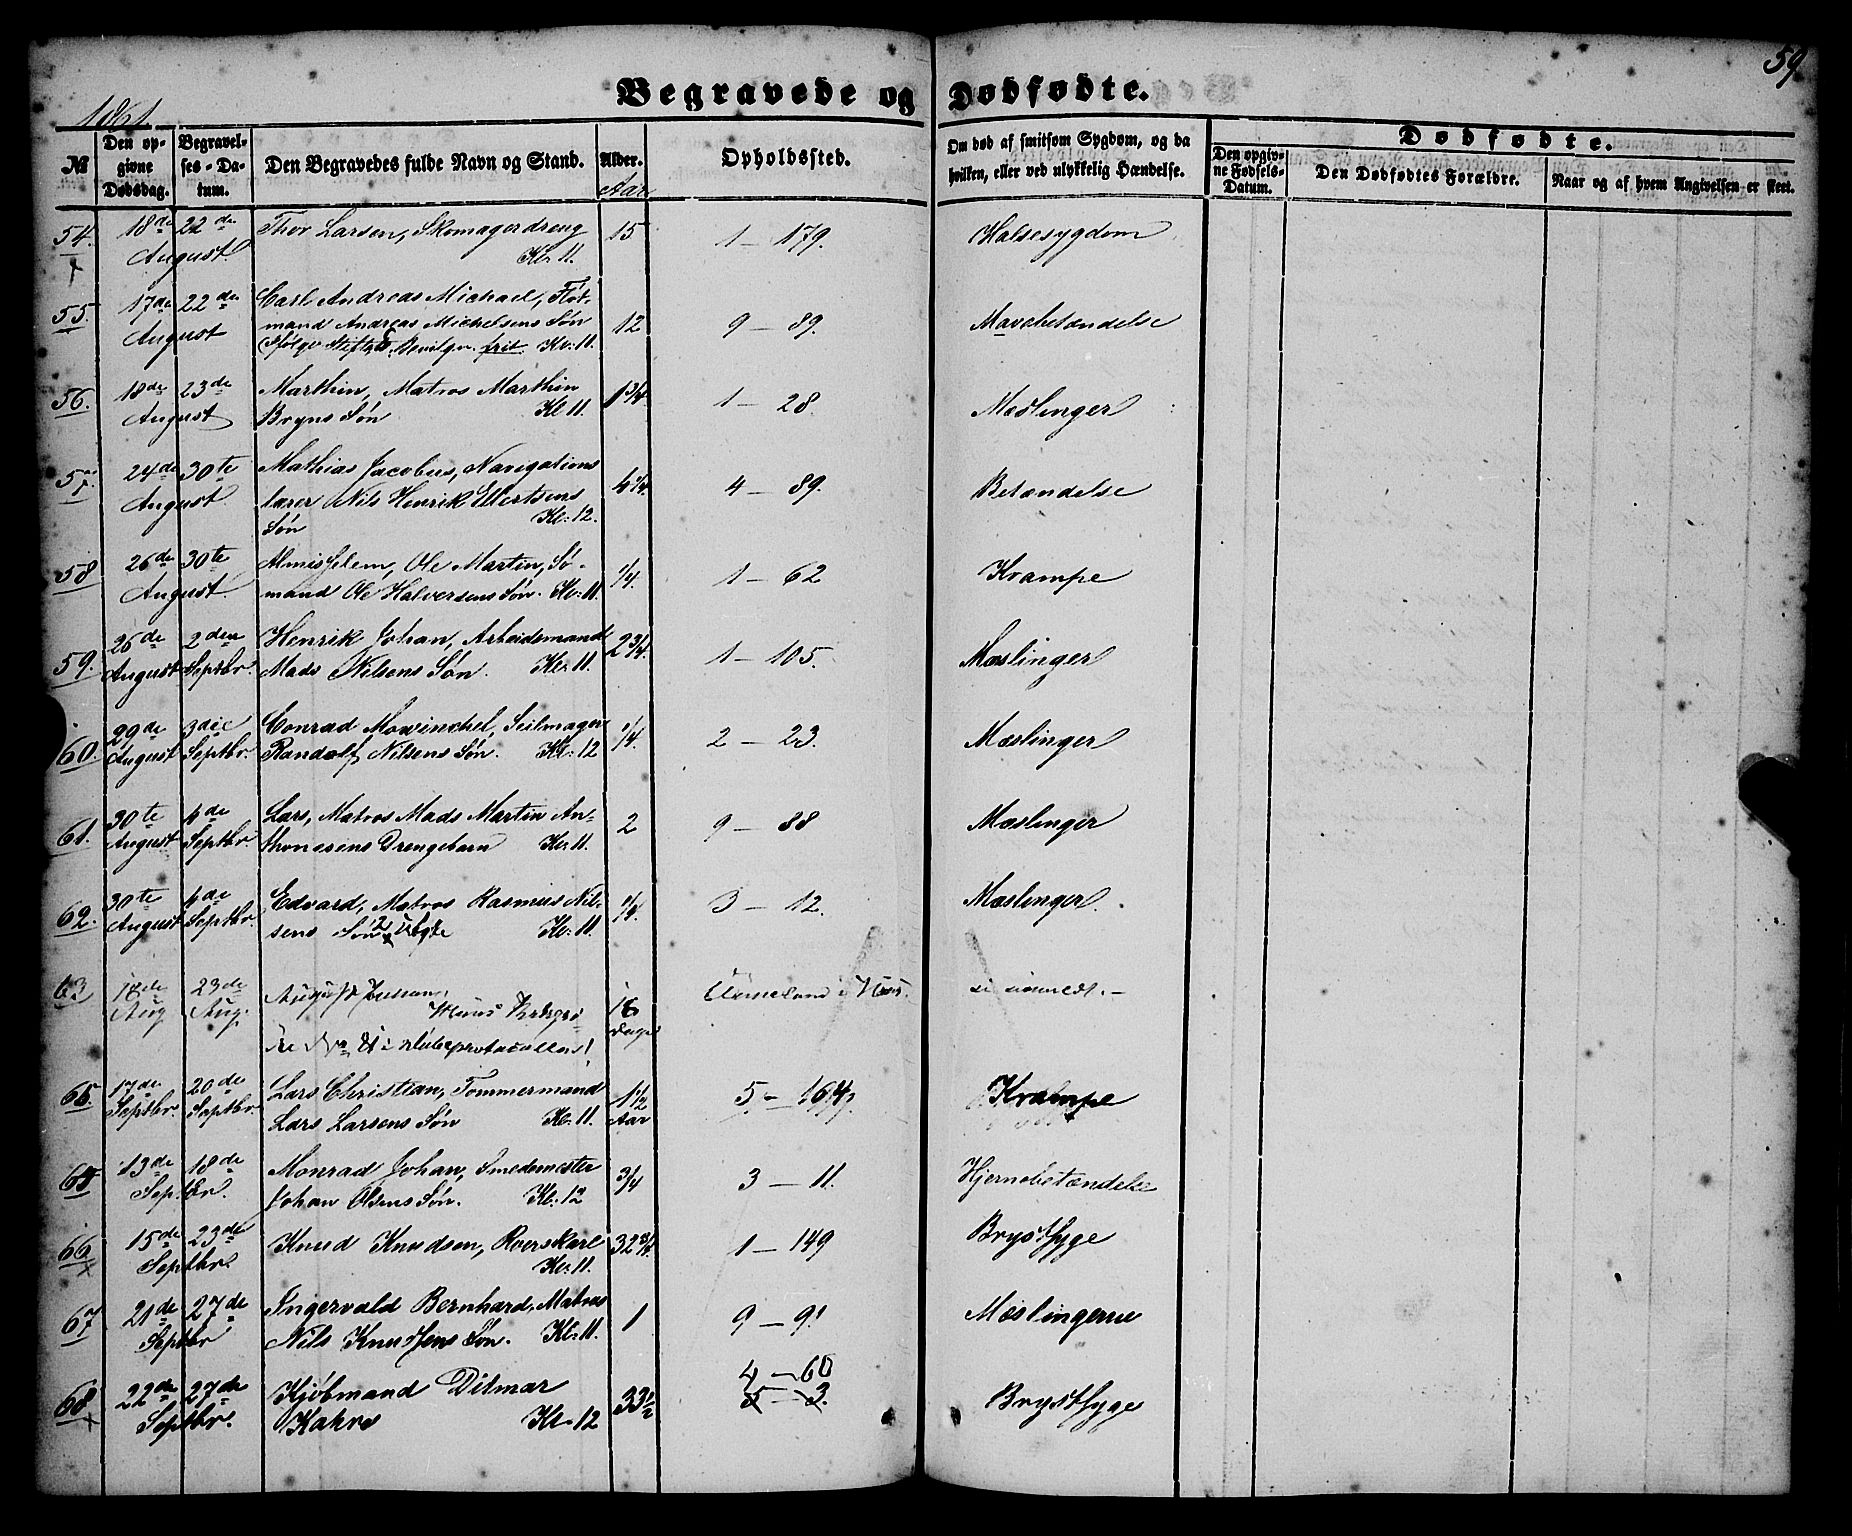 59.
Begravede og Dødfødte.
1861.
№
Den opgivne Dødsdag.
Begravelses-Datum.
Den Begravedes fulde Navn og Stand.
Alder.
Aar
Opholdssted.
Om død af smitsom Sygdom, og da hvilken, eller ved ulykkelig Hændelse.
Dødfødte.
Den opgivne Fødsels-Datum.
Den Dødfødtes Forældre.
Naar og af hvem Angivelsen er skeet.
54. 18de 22de Thor Larsen, Skomagerdreng 15 1 — 179. Halsesygdom
August. Kl. 11.
55. 17de 22de Carl Andreas Michael, Flot-
August mand Andreas Michelsens Søn 12 9 — 89. Mavebetændelse
frit. Kl. 11.
56. 18de 23de Marthin, Matros Marthin 1 3/4 1 — 28. Mæslinger
August Bryns Søn Kl. 11.
57. 24de 30te Mathias Jacobus, Navigations
August lærer Nils Henrik Ellertsens 4 — 89. Betændelse
Søn Kl. 12.
58 26de 30te Ole Martin, Sø- 1/4. 1 — 62 Krampe
August. mand Ole Halversens Søn. Kl. 11.
59. 26de 2den Henrik Johan, Arbeidsmand 2 3/4. 1 — 105. Mæslinger
August Septbr. Mads Nilsens Søn. Kl. 11.
60. 29de 3die Conrad Mowinchel, Seilmager 1/4. 2 — 23. Mæslinger
August Septbr. Randolf Nilsens Søn. Kl. 12
61. 30te 4de Lars, Matros Mads Martin An- 2 9 — 88 Mæslinger
August Septbr. thonesens Drengebarn Kl. 11.
62. 30te 4de Edvard, Matros Rasmus Nil- 3 — 12. Mæslinger.
August Septbr. sens Søn Kl. 11.
63 18de 23de August 16
Aug Aug. Dage
65. 17de 20de Lars Christian, Tømmermand 1 1/2 5 — 164. Krampe
Septbr. Septbr. Lars Larsens Søn Kl. 11. Aar
65 13de 18de Monrad Johan, Smedemester 3/4 3 — 11. Hjernebetændelse
Septbr. Johan Olsens Søn. Kl. 12
66 15de 23de Knud Knudsen, Roerskarl 32 3/4. 1 — 149 Brystsyge
Septbr. Kl. 11.
67 21de 27de Ingervald Bernhard, Matros 1 9 — 91 Mæslingerne
Septbr Nils Knudsens Søn. Kl. 11.
4 — 60
68 22de 27de Kjøbmand Ditmar 33 1/2 5 — 3. Brystsyge
Septbr. Kahrs Kl. 12